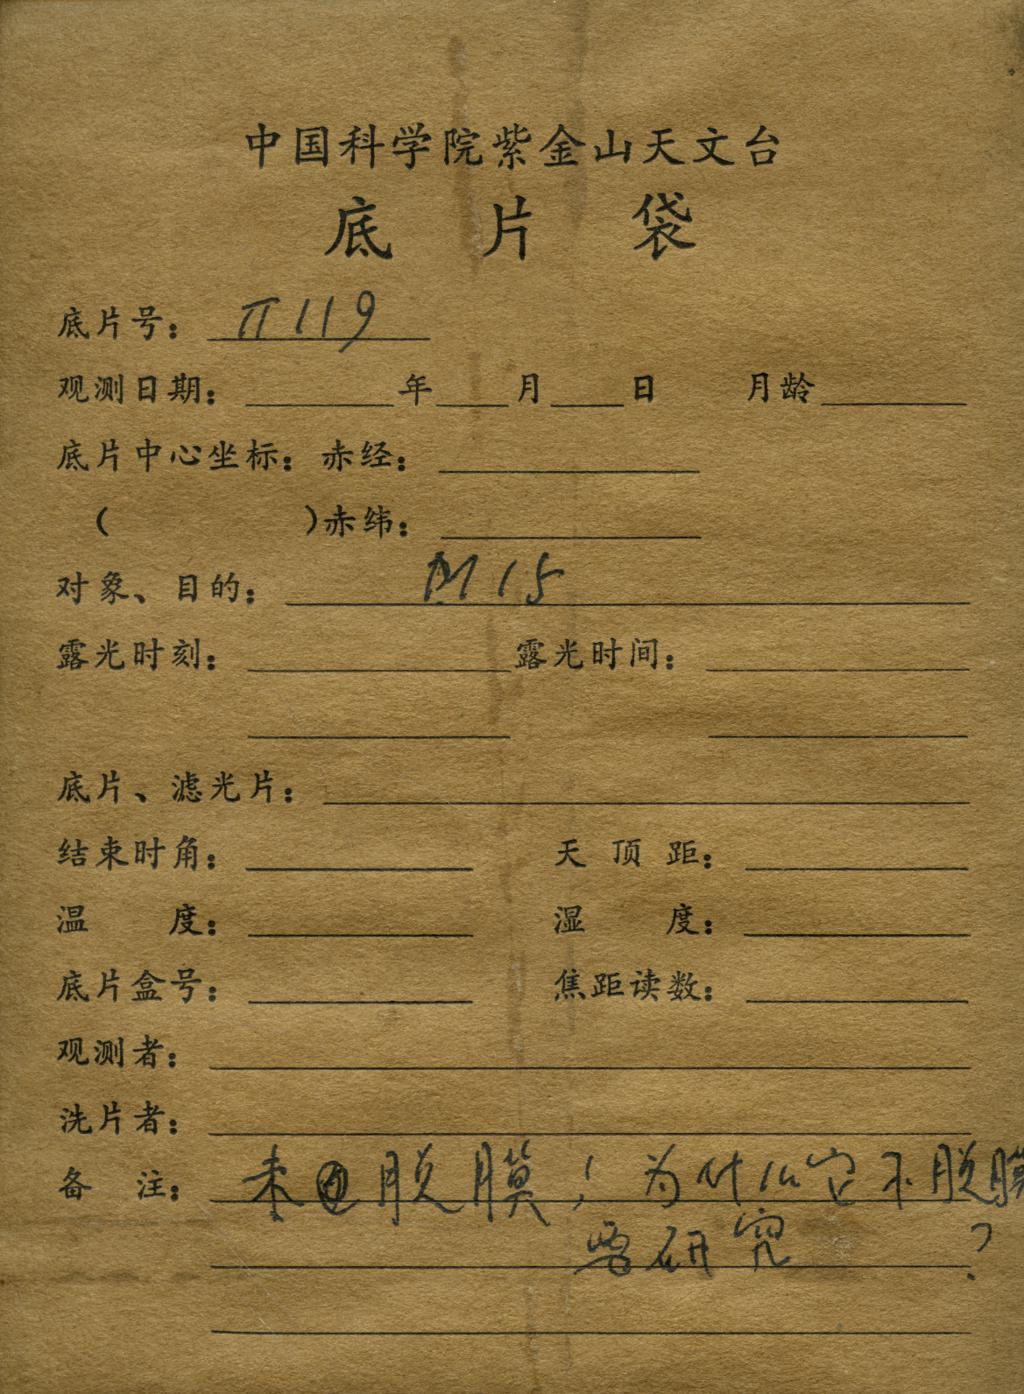 中国科学院紫金山天文台
底片袋
底片号： π119
观测日期： 年 月 日 月龄
底片中心坐标：赤经：
( )赤纬：
对象、目的： M15
露光时刻： 露光时间：
底片、滤光片：
结束时角： 天顶距：
温度： 湿度：
底片盒号： 焦距读数：
观测者：
洗片者：
备注： 未脱膜！为什么它不脱膜
要研究 ？